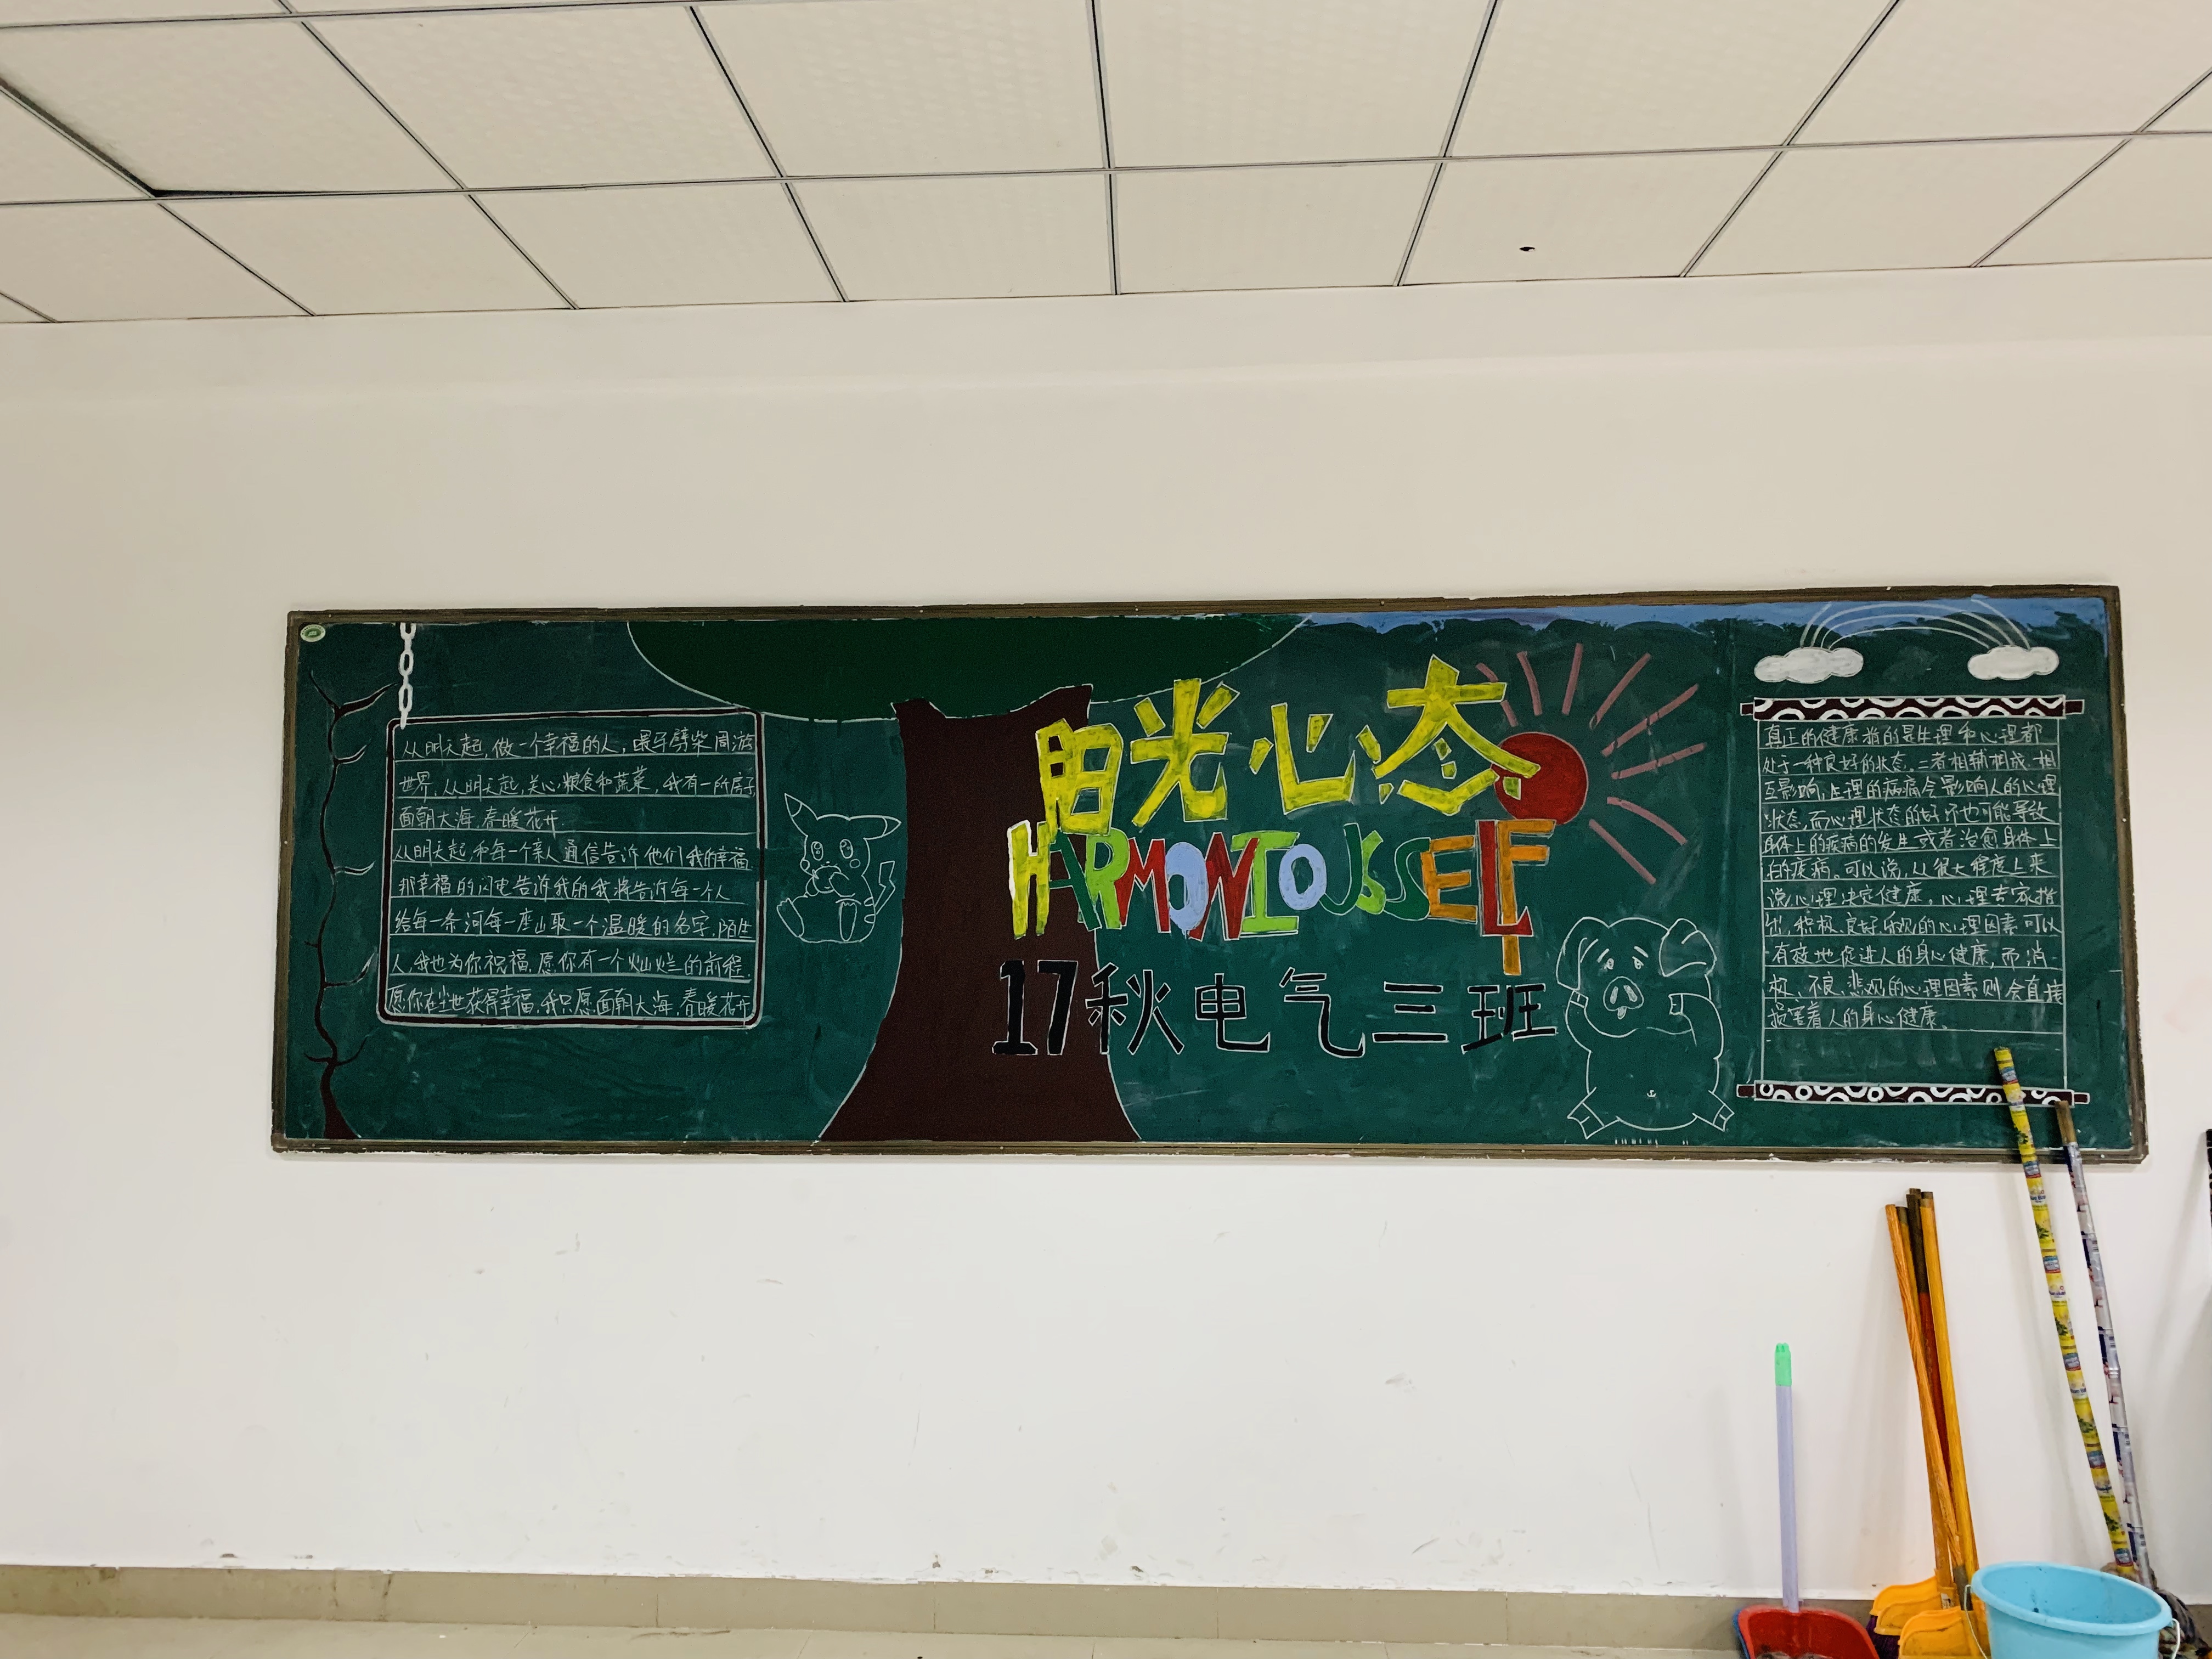 从明天起,做一个幸福的人,喂马劈柴周游
世界,从明天起,关心粮食和蔬菜,我有一所房子,
面朝大海,春暖花开.
从明天起,和每一个亲人通信告诉他们我的幸福.
那幸福的闪电告诉我的我将告诉每一个人
给每一条河每一座山取一个温暖的名字,陌生
人,我也为你祝福.愿你有一个灿烂的前程.
愿你在尘世获得幸福,我只愿面朝大海,春暖花开
阳光心态
HARMONIOUSSELF
17秋电气三班
真正的健康指的是生理和心理都
处于一种良好的状态.二者相辅相成.相
互影响,生理的疾病会影响人的心理
状态,而心理状态的好坏也可能导致
身体上的疾病的发生或者治愈身体上
的疾病。可以说,从很大程度上来
说心理决定健康,心理专家指
出,积极、良好、乐观的心理因素可以
有效地促进人的身心健康,而消
极、不良、悲观的心理因素则会直接
损害着人的身心健康。